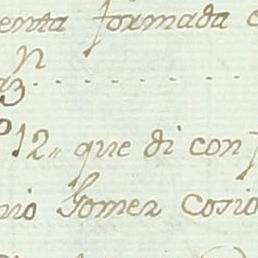 enta formada
n
12,, que di con
nio Gomez Cosio